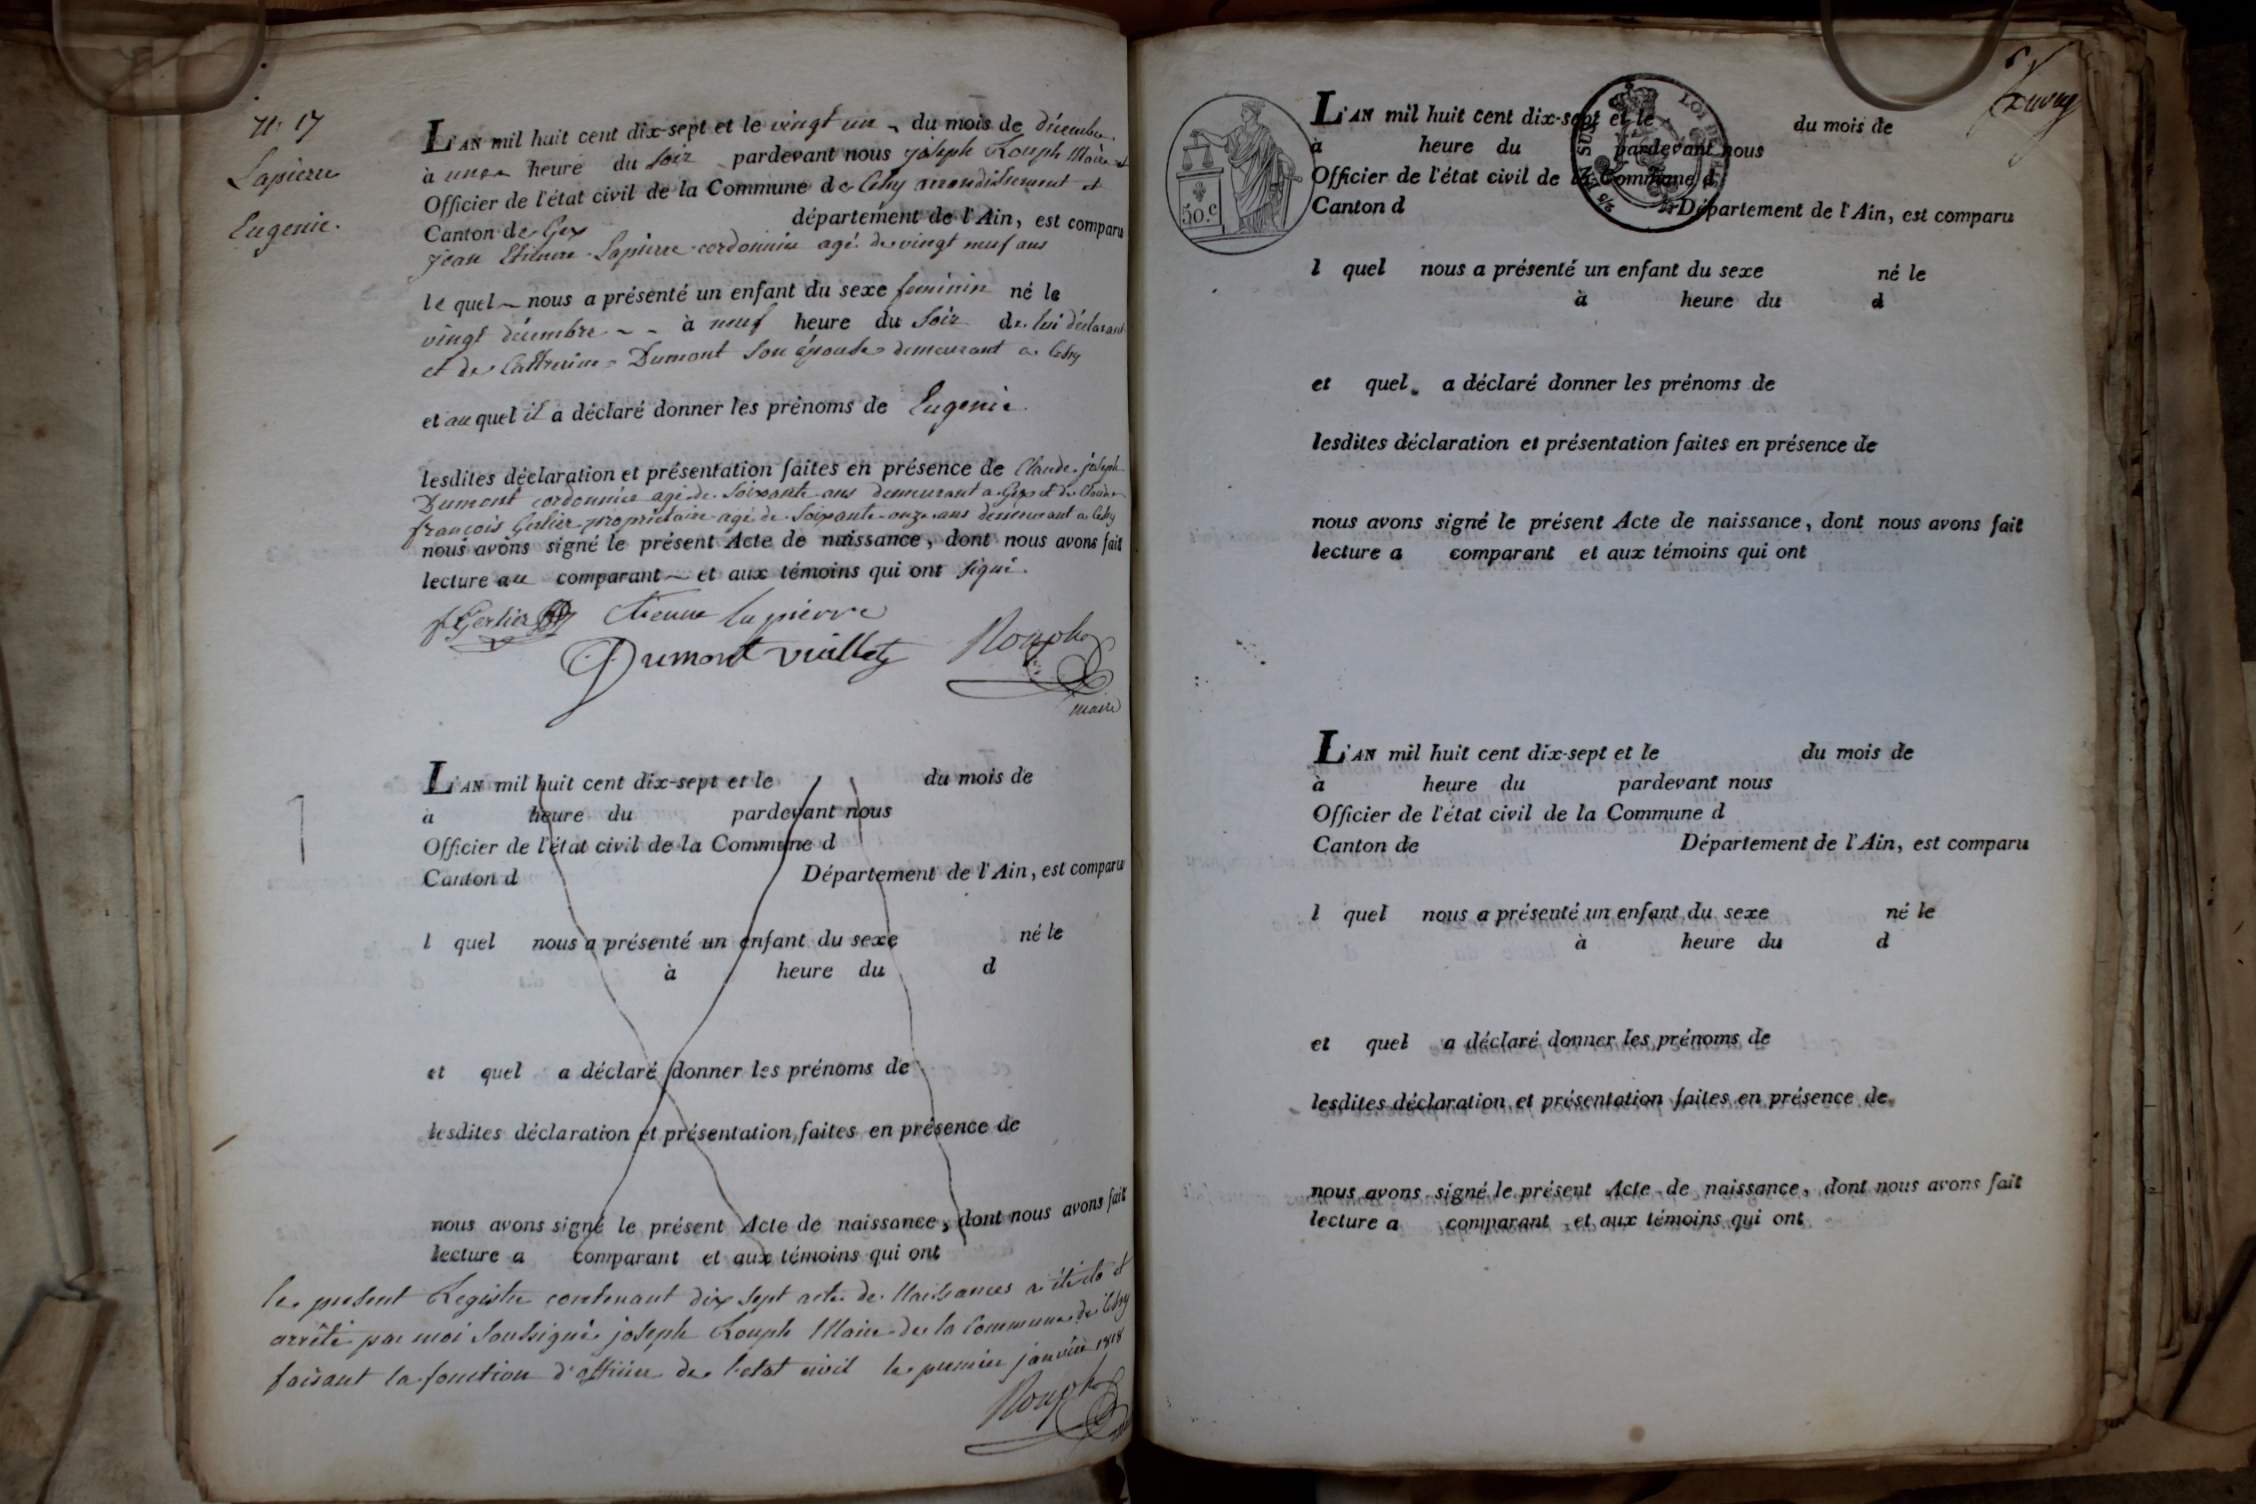 N. 17
Lapierre
Eugenie.
L'AN mil huit cent dix-sept et le vingt un du mois de décembre
à une heure du soir pardevant nous joseph Rouph Maire et
Officier de l'état civil de la Commune de Cessy arrondissement et
Canton de Gex département de l'Ain, est comparu
jean Etienne Lapierre cordonnier agé de vingt neuf ans
le quel nous a présenté un enfant du sexe feminin né le
vingt décembre à neuf heure du soir de lui déclarant
et de Catherine Dumont son épouse demeurant a Cessy
et au quel il a déclaré donner les prénoms de Eugenie.
lesdites déclaration et présentation faites en présence de Claude joseph
Dumont cordonnier agé de soixante ans demeurant a Gex et de Claude
françois Gerlier propriétaire agé de soixante onze ans demeurant a Cessy
nous avons signé le présent Acte de naissance, dont nous avons fait
lecture au comparant et aux témoins qui ont signé.
f Gerlier Etienne lapierre
Dumont Rouph
maire
L'AN mil huit cent dix-sept et le du mois de
à heure du pardevant nous
Officier de l'état civil de la Commune d
Canton d Département de l'Ain, est comparu
l quel nous a présenté un enfant du sexe né le
à heure du d
et quel a déclaré donner les prénoms de
lesdites déclaration et présentation faites en présence de
nous avons signé le présent Acte de naissance, dont nous avons fait
lecture a comparant et aux témoins qui ont
le présent Registre contenant dix sept acte de Naissances a été clo et
arrêté par moi soussigné joseph Rouph Maire de la Commune de Cessy
faisant la fonction d'officier de l'etat civil le premier janvier 1818
Rouph
L'AN mil huit cent dix-sept et le du mois de
à heure du pardevant nous
Officier de l'état civil de la Commune d
Canton d Département de l'Ain, est comparu
50.c
LOI DE
l quel nous a présenté un enfant du sexe né le
à heure du d
et quel a déclaré donner les prénoms de
lesdites déclaration et présentation faites en présence de
nous avons signé le présent Acte de naissance, dont nous avons fait
lecture a comparant et aux témoins qui ont
L'AN mil huit cent dix-sept et le du mois de
à heure du pardevant nous
Officier de l'état civil de la Commune d
Canton de Département de l'Ain, est comparu
l quel nous a présenté un enfant du sexe né le
à heure du d
et quel a déclaré donner les prénoms de
lesdites déclaration et présentation faites en présence de
nous avons signé le présent Acte de naissance, dont nous avons fait
lecture a comparant et aux témoins qui ont